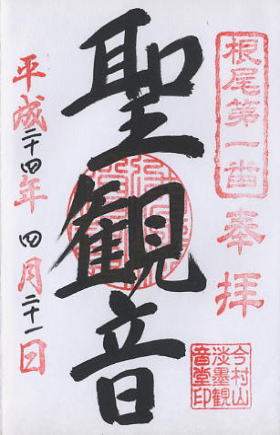 根尾第一番
奉拝
聖観音
平成二十四年 四月二十一日
今村山
淡墨観
音堂印